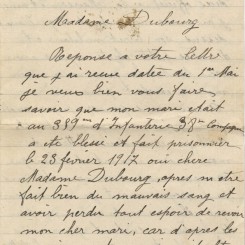 Madame Dubourg
Reponse a votre lettre
que j'ai resue datée du 1er Mai
je veus bien vous faire
savoir que mon mari était
au 389me d'Infanterie 38e Compagnie
a été blessé et fait prisonnier
le 23 février 1917 oui chere
Madame Dubourg, apres m'etre
fait bien du mauvais sang et
avoir perdu tout espoir de revoir
mon cher mari, car d'apres les